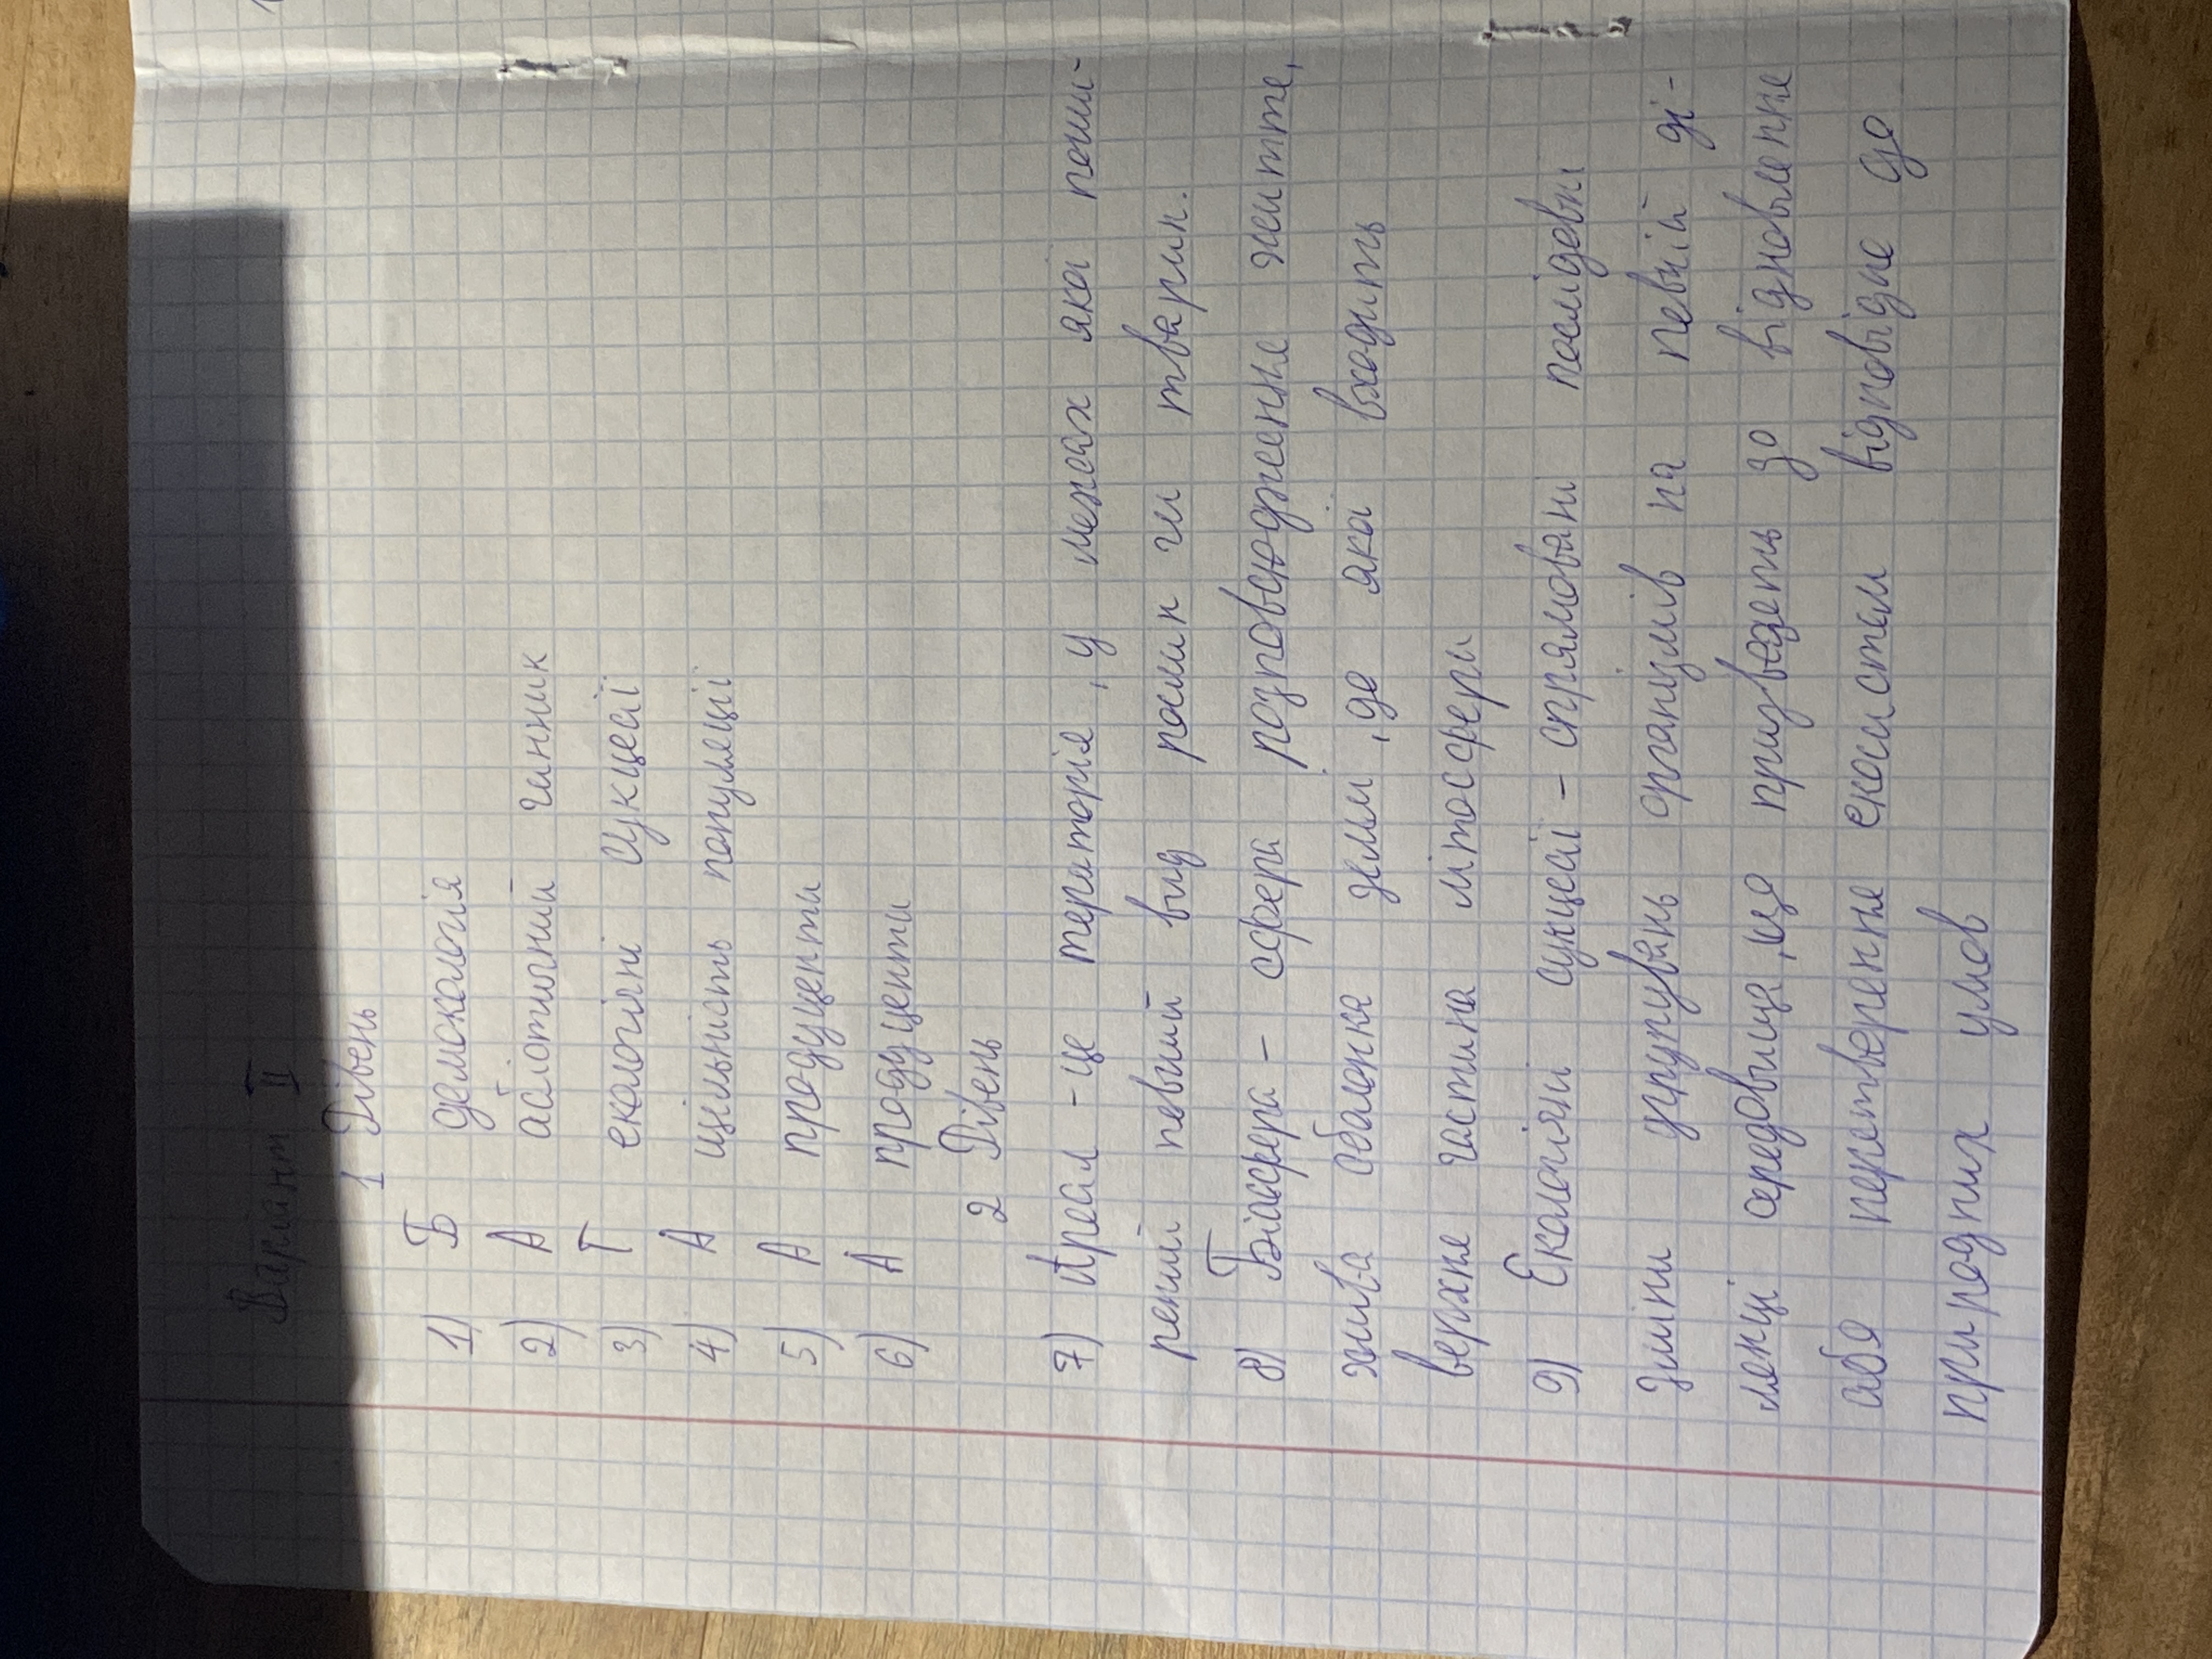 Варіант ІІ
1 Рівень
1) Б демокологія
2) А абіотичний чинник
3) Г екологічні сукцесії
4) А щільність популяції
5) А продуценти
6) А продуценти
2 Рівень
7) Ареал - це територія, у межах якої поши-
рений певний вид рослин чи тварин.
8) Біосфера - сфера розповсюдження життя,
жива оболонка землі, де якої входить
верхня частина літосфери
9) Екологічні сукцесії - спрямовані послідовні
зміни угрупувань організмів на певній ді-
лянці середовища, що призведеть до відновлення
або перетворення екосистем відповідно до
природних умов